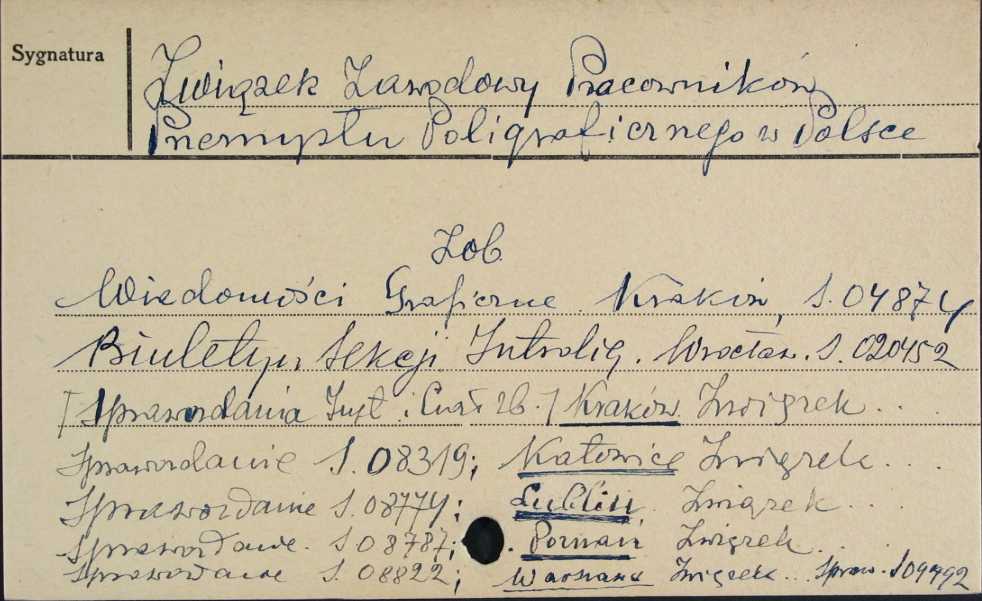 Sygnatura
Związek Zawodowy Pracowników
Przemysłu Poligraficznego w Polsce
Zob.
Wiadomości Graficzne. Kraków, S. 04874
Biuletyn Sekcji Introlig. Wrocław. S. 020452
[Sprawozdania Inst. i 2b.] Kraków. Związek ...
Sprawozdanie S. 08319; Katowice Związek ....
Sprawozdanie S. 08774; Lublin. Związek ...
Sprawozdanie. S 08787; Poznań Związek ...
Sprawozdanie S. 08822; Warszawa Związek ... Spraw. S 09492